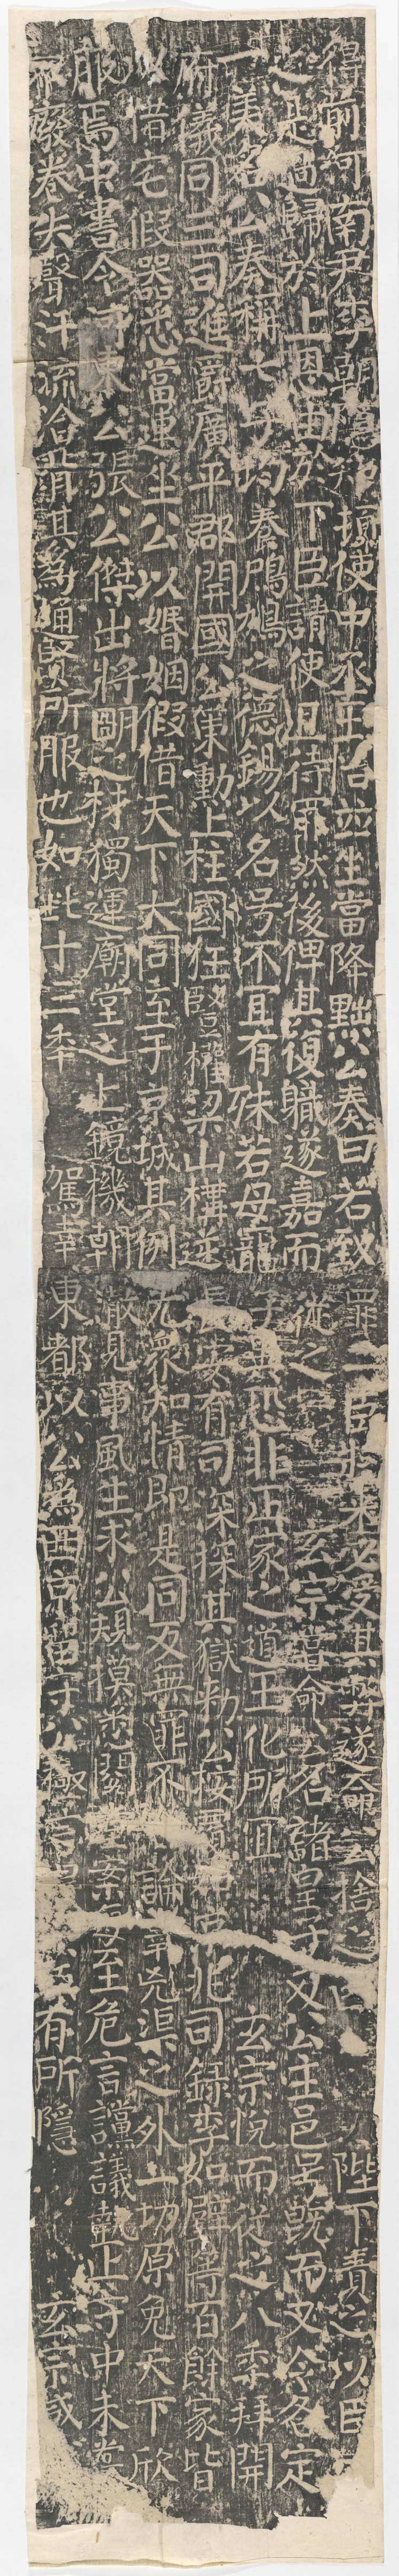 得前河南尹李朝隱知頓使中丞王怡並坐當降黜公奏曰若致罪二臣將來必受其弊遽命捨之公曰陛下責之以臣
之是過歸於上恩由於下臣請使且待罪然後俾其復職遂嘉而從之玄宗嘗命公名諸皇子及公主邑号既而又令各定
一美名公奏稱七子均養鳲鳩之德錫以名号不宜有殊若母寵子異恐非正家之道王化所宜玄宗悅而從之八年拜開
府儀同三司進爵廣平郡開國公策勳上柱國狂豎權梁山構逆長安有司深探其獄勑公按覆北司錄李如璧等百餘家皆
以借宅假器悉當連坐公以婚姻假借天下大同至于京城其例尤眾知情即是同反無罪不論辜兇沮之外一切原免天下欣
服焉中書令河東公張公傑出將明之材獨運廟堂之上鏡機朝澈見事風生求公規摸悉閱堂案每至危言讜議輒止于中未嘗
不廢卷失聲汗流洽背其為通賢所服也如此十三年駕幸東都以公為西京留守公極言得有所隱玄宗咸